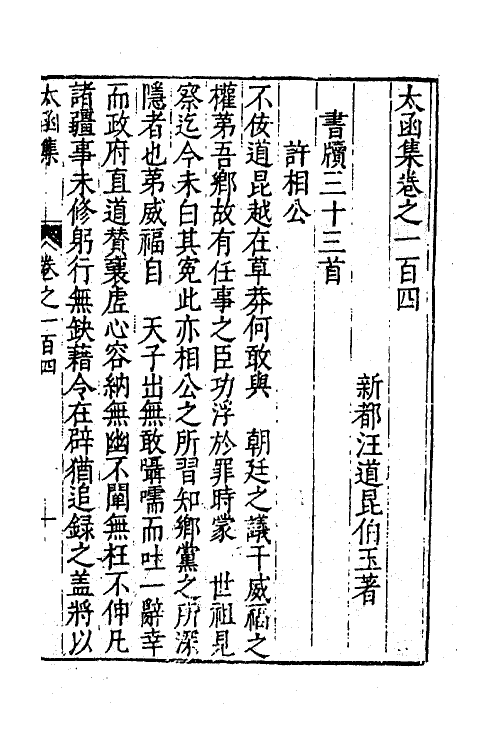 太函集卷之一百四
新都汪道昆伯玉著
書牘三十三首
許相公
不佞道昆越在草莽何敢與　朝廷之議干威福之
權第吾鄉故有任事之臣功浮於罪時蒙　世祖見
察迄今未白其冤此亦相公之所習知鄉黨之所深
隱者也第威福自　天子出無敢囁嚅而吐一辭幸
而政府直道贊襄虛心容納無幽不闡無枉不伸凡
諸疆事未修躬行無缺藉令在辟猶追録之盖將以
太函集　卷之一百四　一